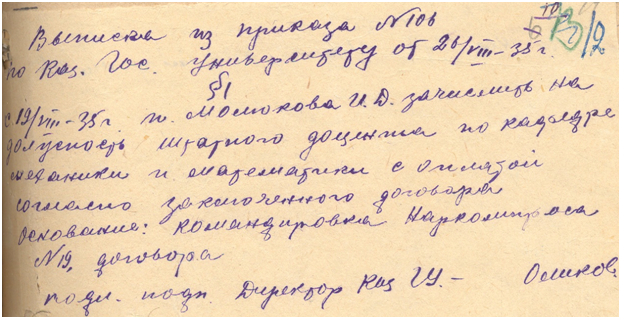 Выписка из приказа N106
по Каз. Гос. Университету от 26/VIII-35 г.
§1
с 19/VIII-35 г. т. Молюкова И. Д. зачислить на
должность штатного доцента по кафедре
механики и математики с оплатой
согласно заключенного договора
Основание: командировка Наркомпроса
N19, договора
подл. подп. Директор Каз ГУ. – Оликов.